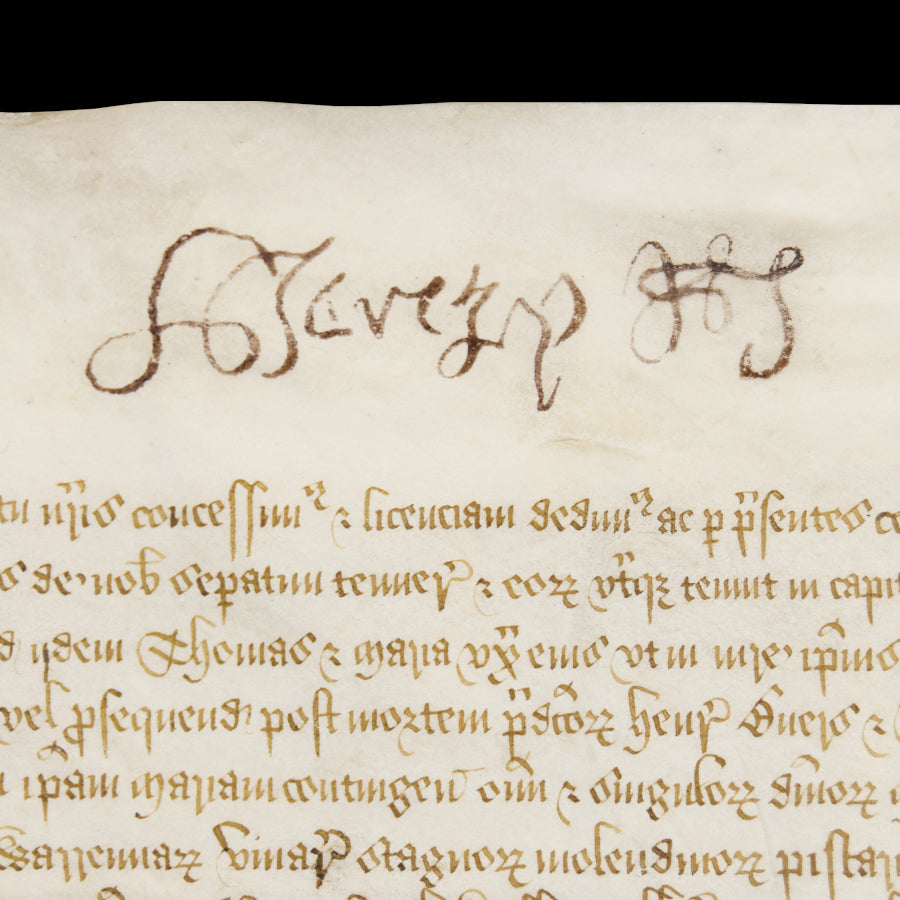 Henry R
n̄ris concessim᷒ ⁊ licenciam dedim᷒ ac p̱ p̄sentes
de nob̄ sep̱atim tenuer̄ ⁊ eoꝝ vt̄qꝫ tenuit in capit
ijdem Thomas ⁊ maria vx̄ eius vt in iure ip̄ius
vel ꝓsequend post mortem p̄dc̄oꝝ henr̄ Eueris ⁊
ip̄am mariam contingen̄ om̄ ⁊ singuloꝝ dm̄oꝝ
Warrennaꝝ viuar̄ stagnoꝝ molendinoꝝ piscar